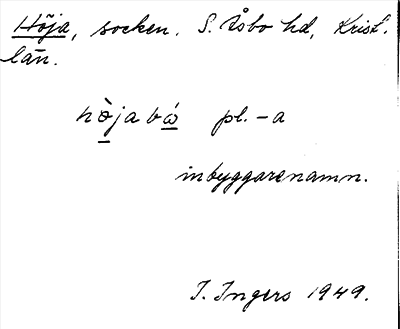 Höja, socken. S. Åsbo hd, Krist.
län.
hòjabó pl. -a
inbyggarenamn.
I. Ingers 1949.